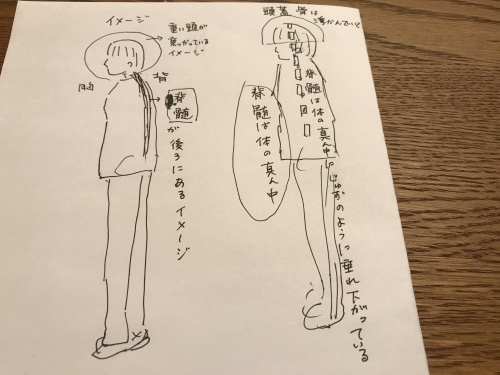 イメージ
重い頭が
乗っかっている
イメージ
胸
背
脊髄
が後ろにあるイメージ
頭蓋骨は浮かんでいて
脊髄は体の真ん中
脊髄は体の真ん中にじゅずのように垂れ下がっている